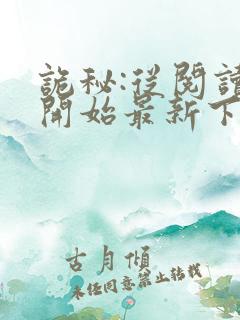 詭秘:從閱讀
開始最新下
古月傾
未經同意禁止轉載